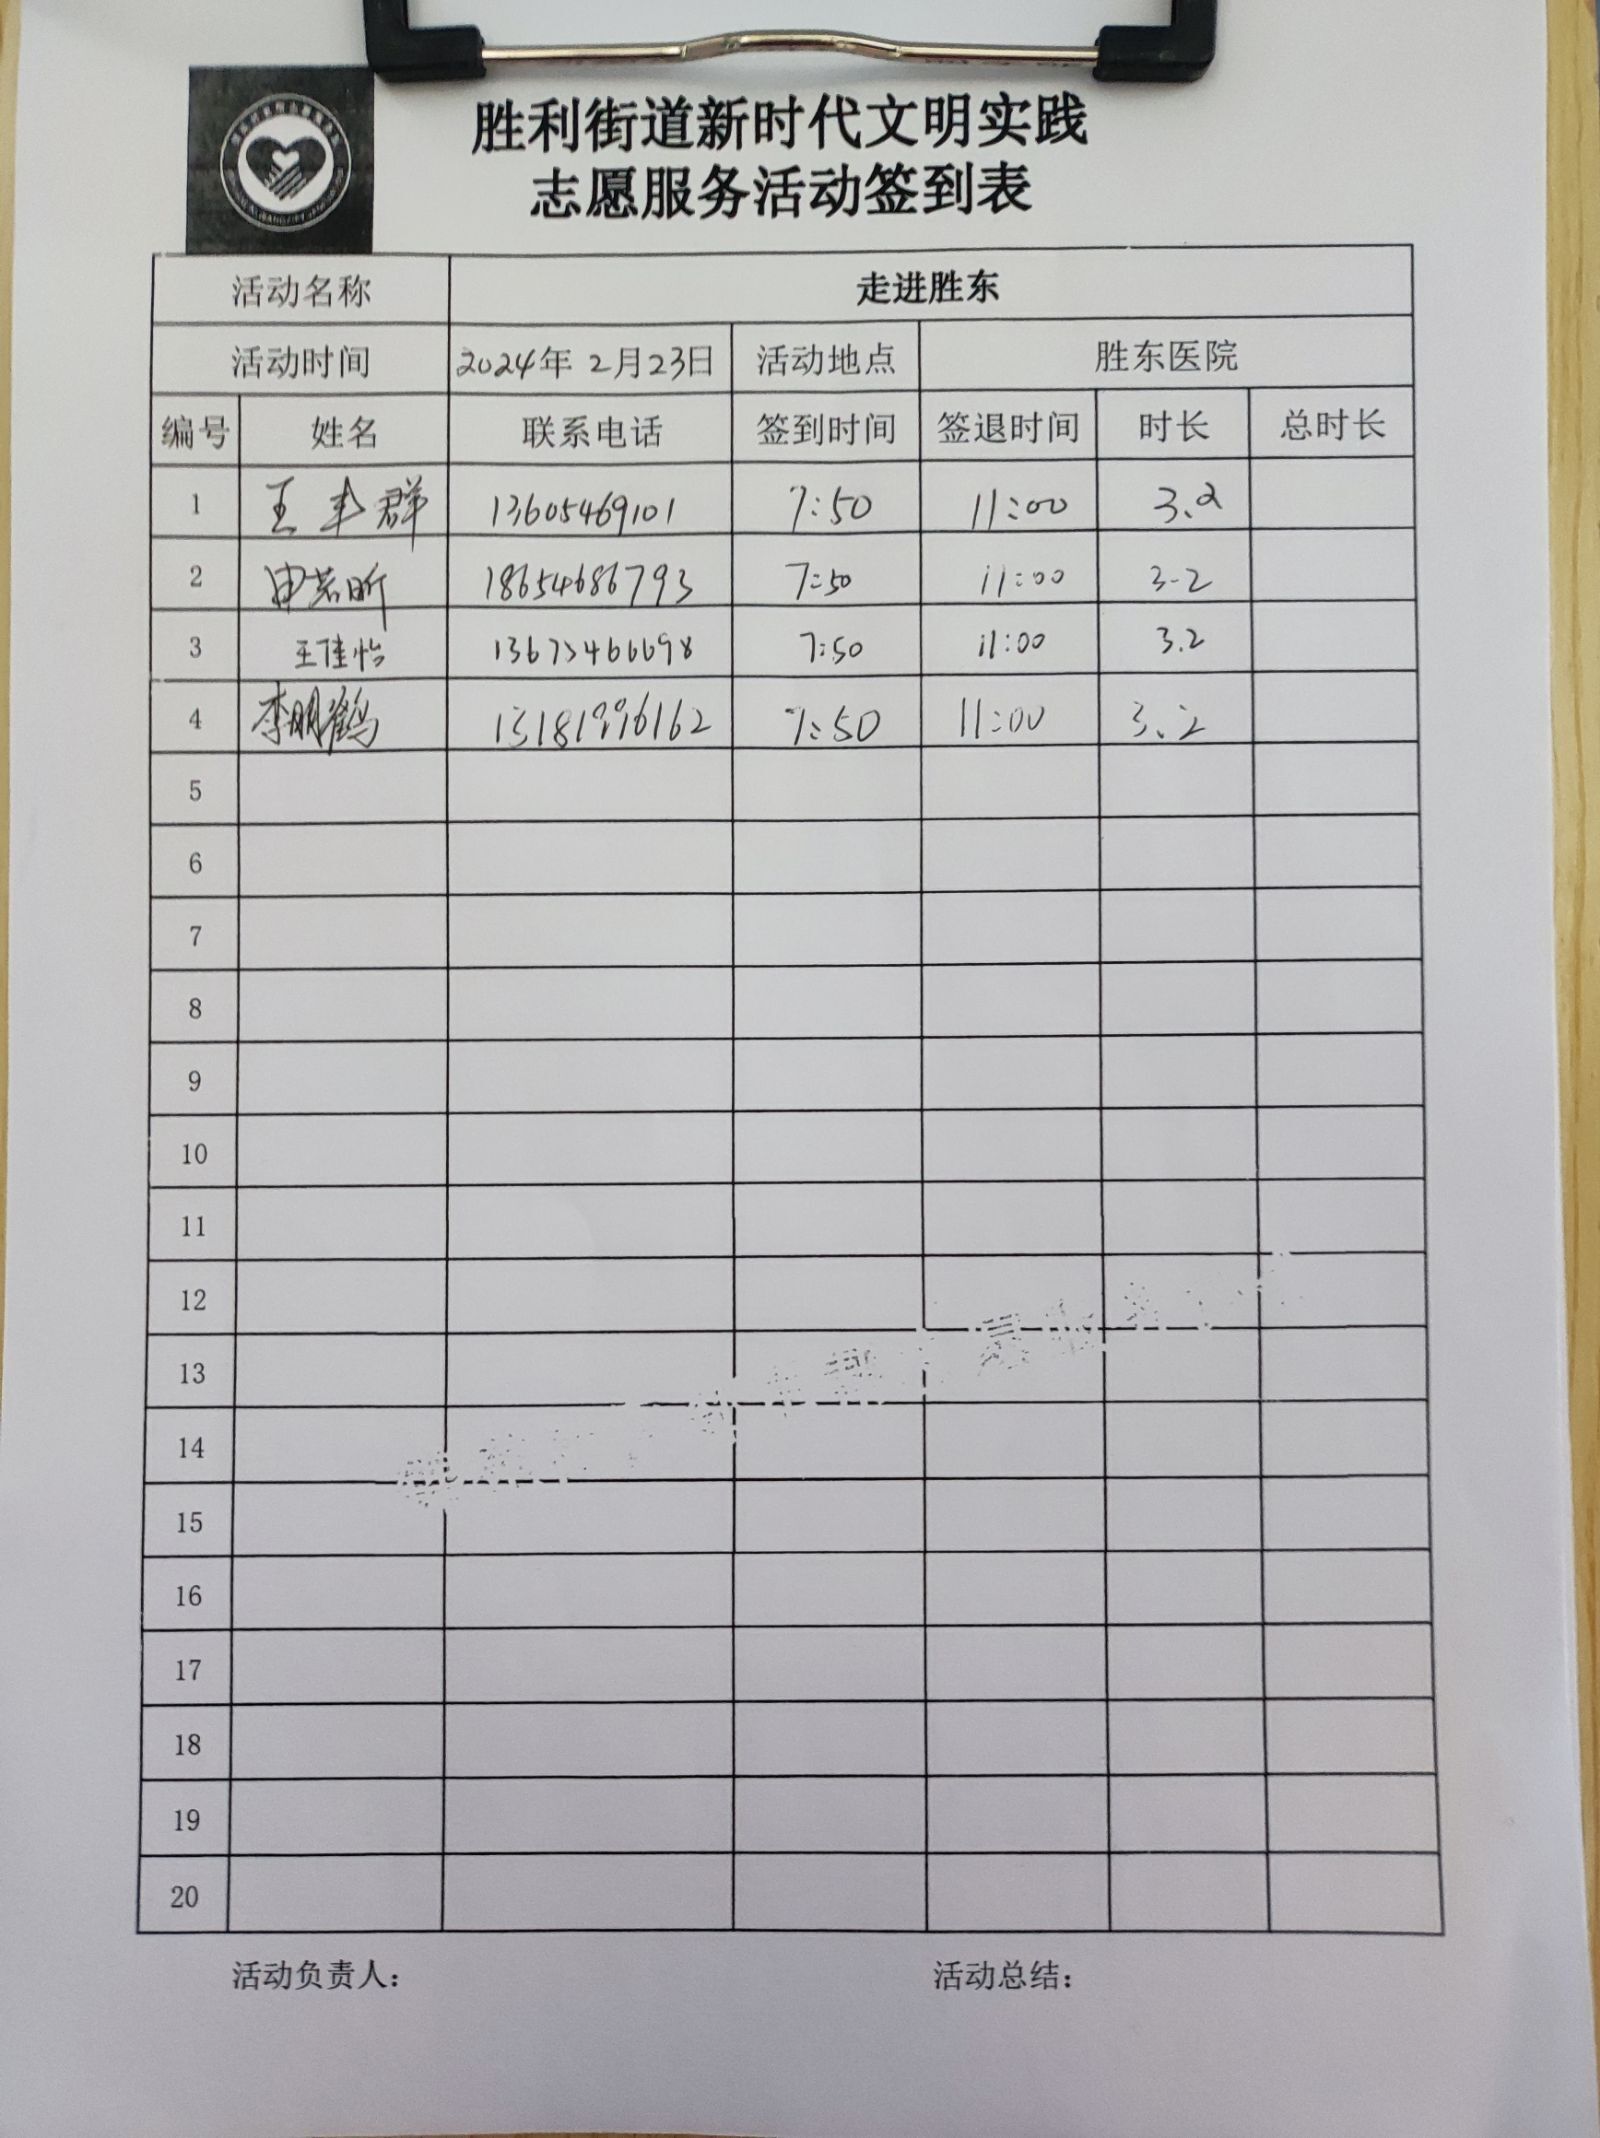 胜利街道新时代文明实践
志愿服务活动签到表
活动名称 走进胜东
活动时间 2024年 2月23日 活动地点 胜东医院
编号 姓名 联系电话 签到时间 签退时间 时长 总时长
1 王丰群 13605469101 7:50 11:00 3.2
2 申若昕 18654686793 7:50 11:00 3.2
3 王佳怡 7:50 11:00 3.2
4 李明鹤 13181996162 7:50 11:00 3.2
5
6
7
8
9
10
11
12
13
14
15
16
17
18
19
20
活动负责人： 活动总结：